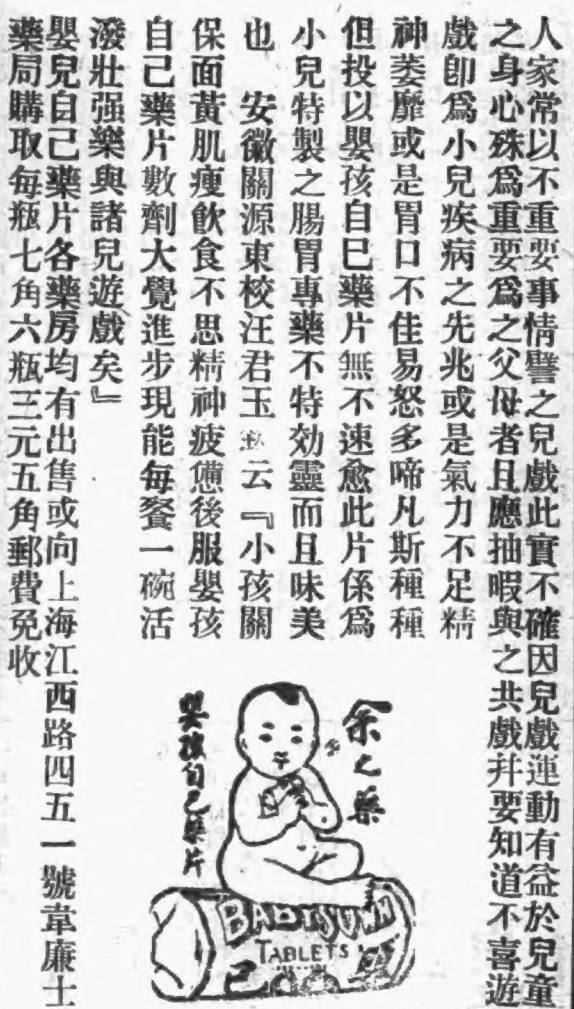 人家常以不重要事情譬之兒戲此實不確因兒戲運動有益於兒童
之身心殊爲重要爲之父母者且應抽暇與之共戲幷要知道不喜遊
戲卽爲小兒疾病之先兆或是氣力不足精
神萎靡或是胃口不佳易怒多啼凡斯種種
但投以嬰孩自己藥片無不速愈此片係爲
小兒特製之腸胃專藥不特効靈而且味美
也 安徽關源東校汪君玉 云『小孩關
保面黃肌瘦飲食不思精神疲憊後服嬰孩
自己藥片數劑大覺進步現能每餐一碗活
潑壯强樂與諸兒遊戲矣』
嬰兒自己藥片各藥房均有出售或向上海江西路四五一號韋廉士
藥局購取每瓶七角六瓶三元五角郵費免收
余之藥
嬰孩自己藥片
BABY'S OWN
TABLETS